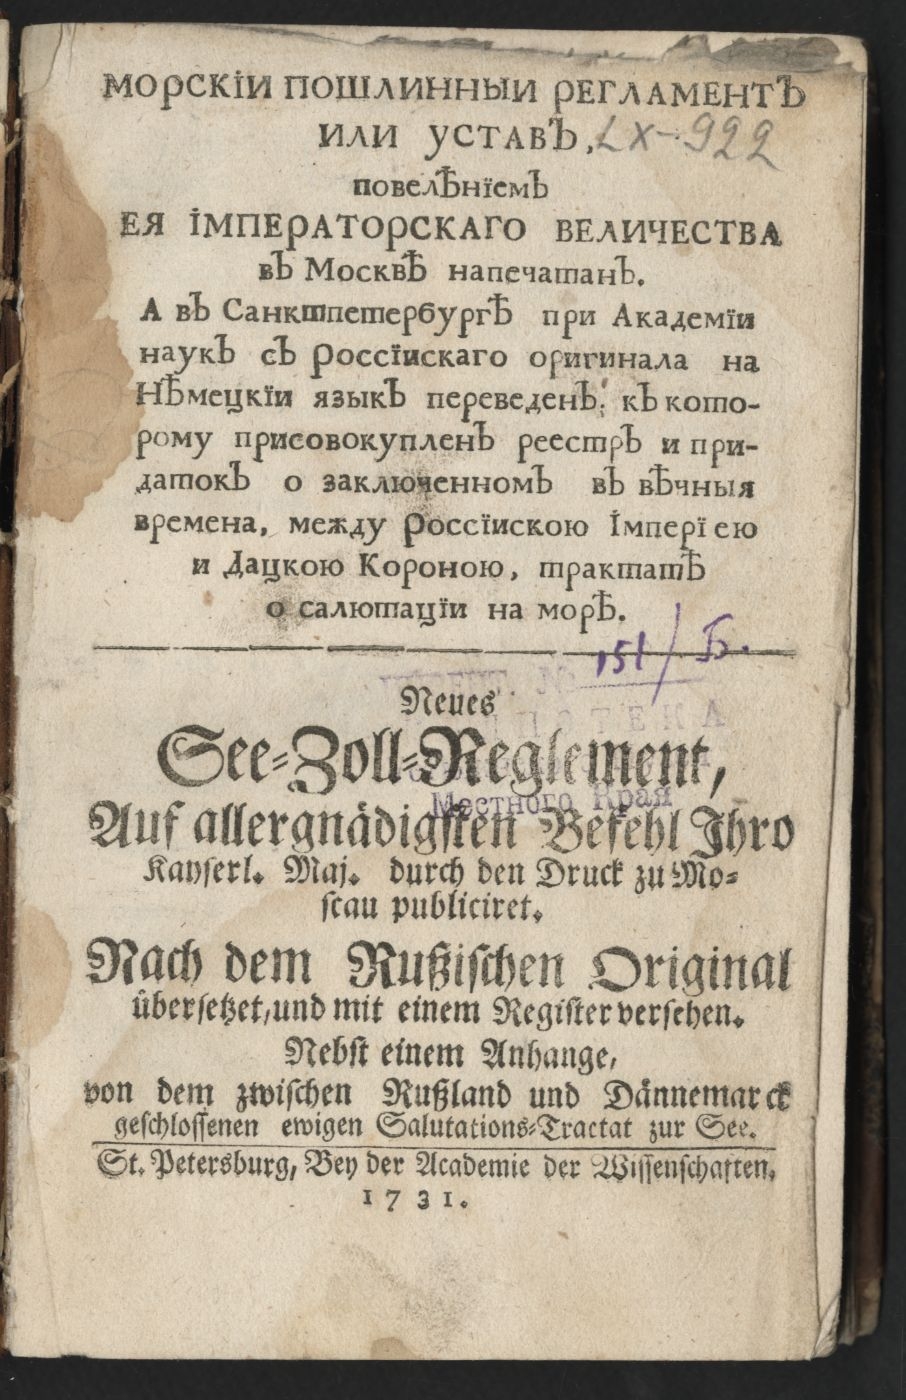 МОРСКІИ ПОШЛИННЫИ РЕГЛАМЕНТЪ
ИЛИ УСТАВЪ,
LX-922
повелѣнїемъ
ЕЯ ІМПЕРАТОРСКАГО ВЕЛИЧЕСТВА
въ Москвѣ напечатанъ.
А въ Санктпетербургѣ при Академїи
наукъ съ россїискаго оригинала на
Нѣмецкїи языкъ переведенъ: къ кото-
рому присовокупленъ реестръ и при-
датокъ о заключенномъ въ вѣчныя
времена, между россїискою Імперїею
и Дацкою Короною, трактатѣ
о салютацїи на морѣ.
151/Б.
Neues
See-Zoll-Reglement,
Местного Края
Auf allergnädigsten Befehl Ihro
Kayserl. Maj. durch den Druck zu Mo-
scau publiciret.
Nach dem Rußischen Original
übersetzet, und mit einem Register versehen.
Nebst einem Anhange,
von dem zwischen Rußland und Dännemarck
geschlossenen ewigen Salutations-Tractat zur See.
St. Petersburg, Bey der Academie der Wissenschaften.
1731.